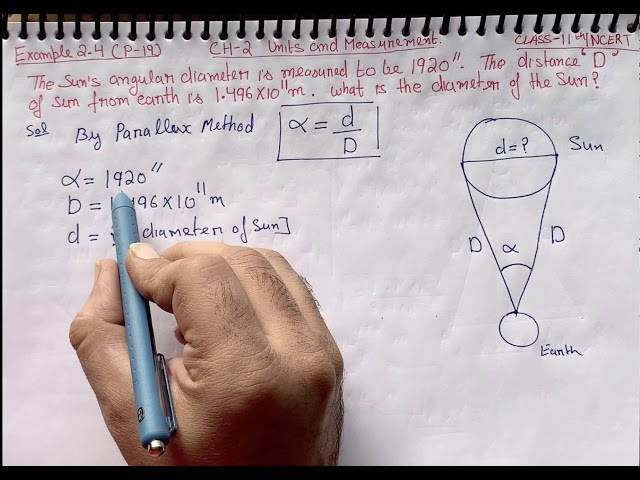 Example 2.4 (P-19) CH-2 Units and Measurement. CLASS-11th NCERT
The Sun's angular diameter is measured to be 1920''. The distance 'D'
of sun from earth is 1.496×10¹¹m. what is the diameter of the Sun?
Sol By Parallax Method α = d/D
d=? Sun
α = 1920''
D = 1.496×10¹¹ m
d = diameter of Sun]
D α D
Earth